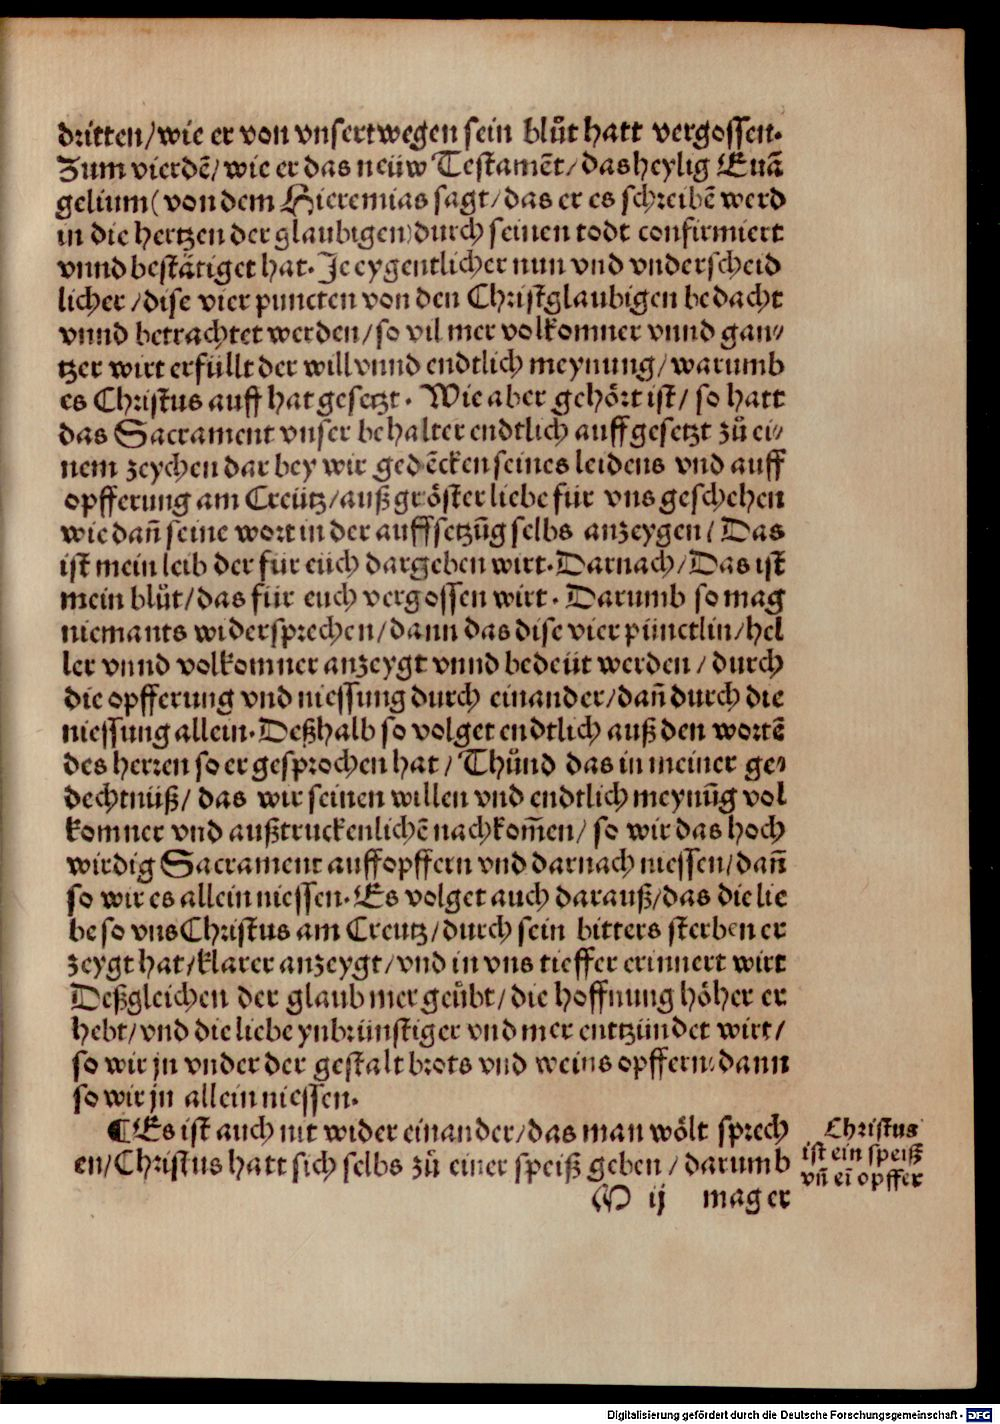 dritten/wie er von vnsertwegen sein blůt hatt vergossen.
Zum vierdē/wie er das neüw Testamēt/das heylig Euā
gelium(von dem Hieremias sagt/das er es schreibē werd
in die hertzen der glaubigen)durch seinen todt confirmiert
vnnd bestätiget hat. Je eygentlicher nun vnd vnderscheid
licher/dise vier puncten von den Christglaubigen bedacht
vnnd betrachtet werden/so vil mer volkomner vnnd gan⸗
tzer wirt erfüllt der will vnnd endtlich meynung/warumb
es Christus auff hat gesetzt. Wie aber gehört ist/so hatt
das Sacrament vnser behalter endtlich auffgesetzt zů ei⸗
nem zeychen dar bey wir gedēcken seines leidens vnd auff
opfferung am Creütz/auß gröster liebe für vns geschehen
wie dañ seine wort in der auffsetzūg selbs anzeygen/Das
ist mein leib der für eüch dargeben wirt. Darnach/Das ist
mein blůt/das für euch vergossen wirt. Darumb so mag
niemants widersprechen/dann das dise vier pünctlin/hel
ler vnnd volkomner anzeygt vnnd bedeüt werden/durch
die opfferung vnd niessung durch einander/dañ durch die
niessung allein. Deßhalb so volget endtlich auß den wortē
des herren so er gesprochen hat/Thůnd das in meiner ge⸗
dechtnüß/das wir seinen willen vnd endtlich meynūg vol
komner vnd außtruckenlichē nachkom̄en/so wir das hoch
wirdig Sacrament auffopffern vnd darnach niessen/dañ
so wir es allein niessen. Es volget auch darauß/das die lie
be so vns Christus am Creutz/durch sein bitters sterben er
zeygt hat/klarer anzeygt/vnd in vns tieffer erinnert wirt
Deßgleichen der glaub mer geübt/die hoffnung höher er
hebt/vnd die liebe ynbrünstiger vnd mer enttzündet wirt/
so wir jn vnder der gestalt brots vnd weins opffern/dann
so wir jn allein niessen.
¶Es ist auch nit wider einander/das man wölt sprech
en/Christus hatt sich selbs zů einer speiß geben/darumb
Christus
ist ein speiß
vñ eī opffer
M ij mag er
Digitalisierung gefördert durch die Deutsche Forschungsgemeinschaft - DFG